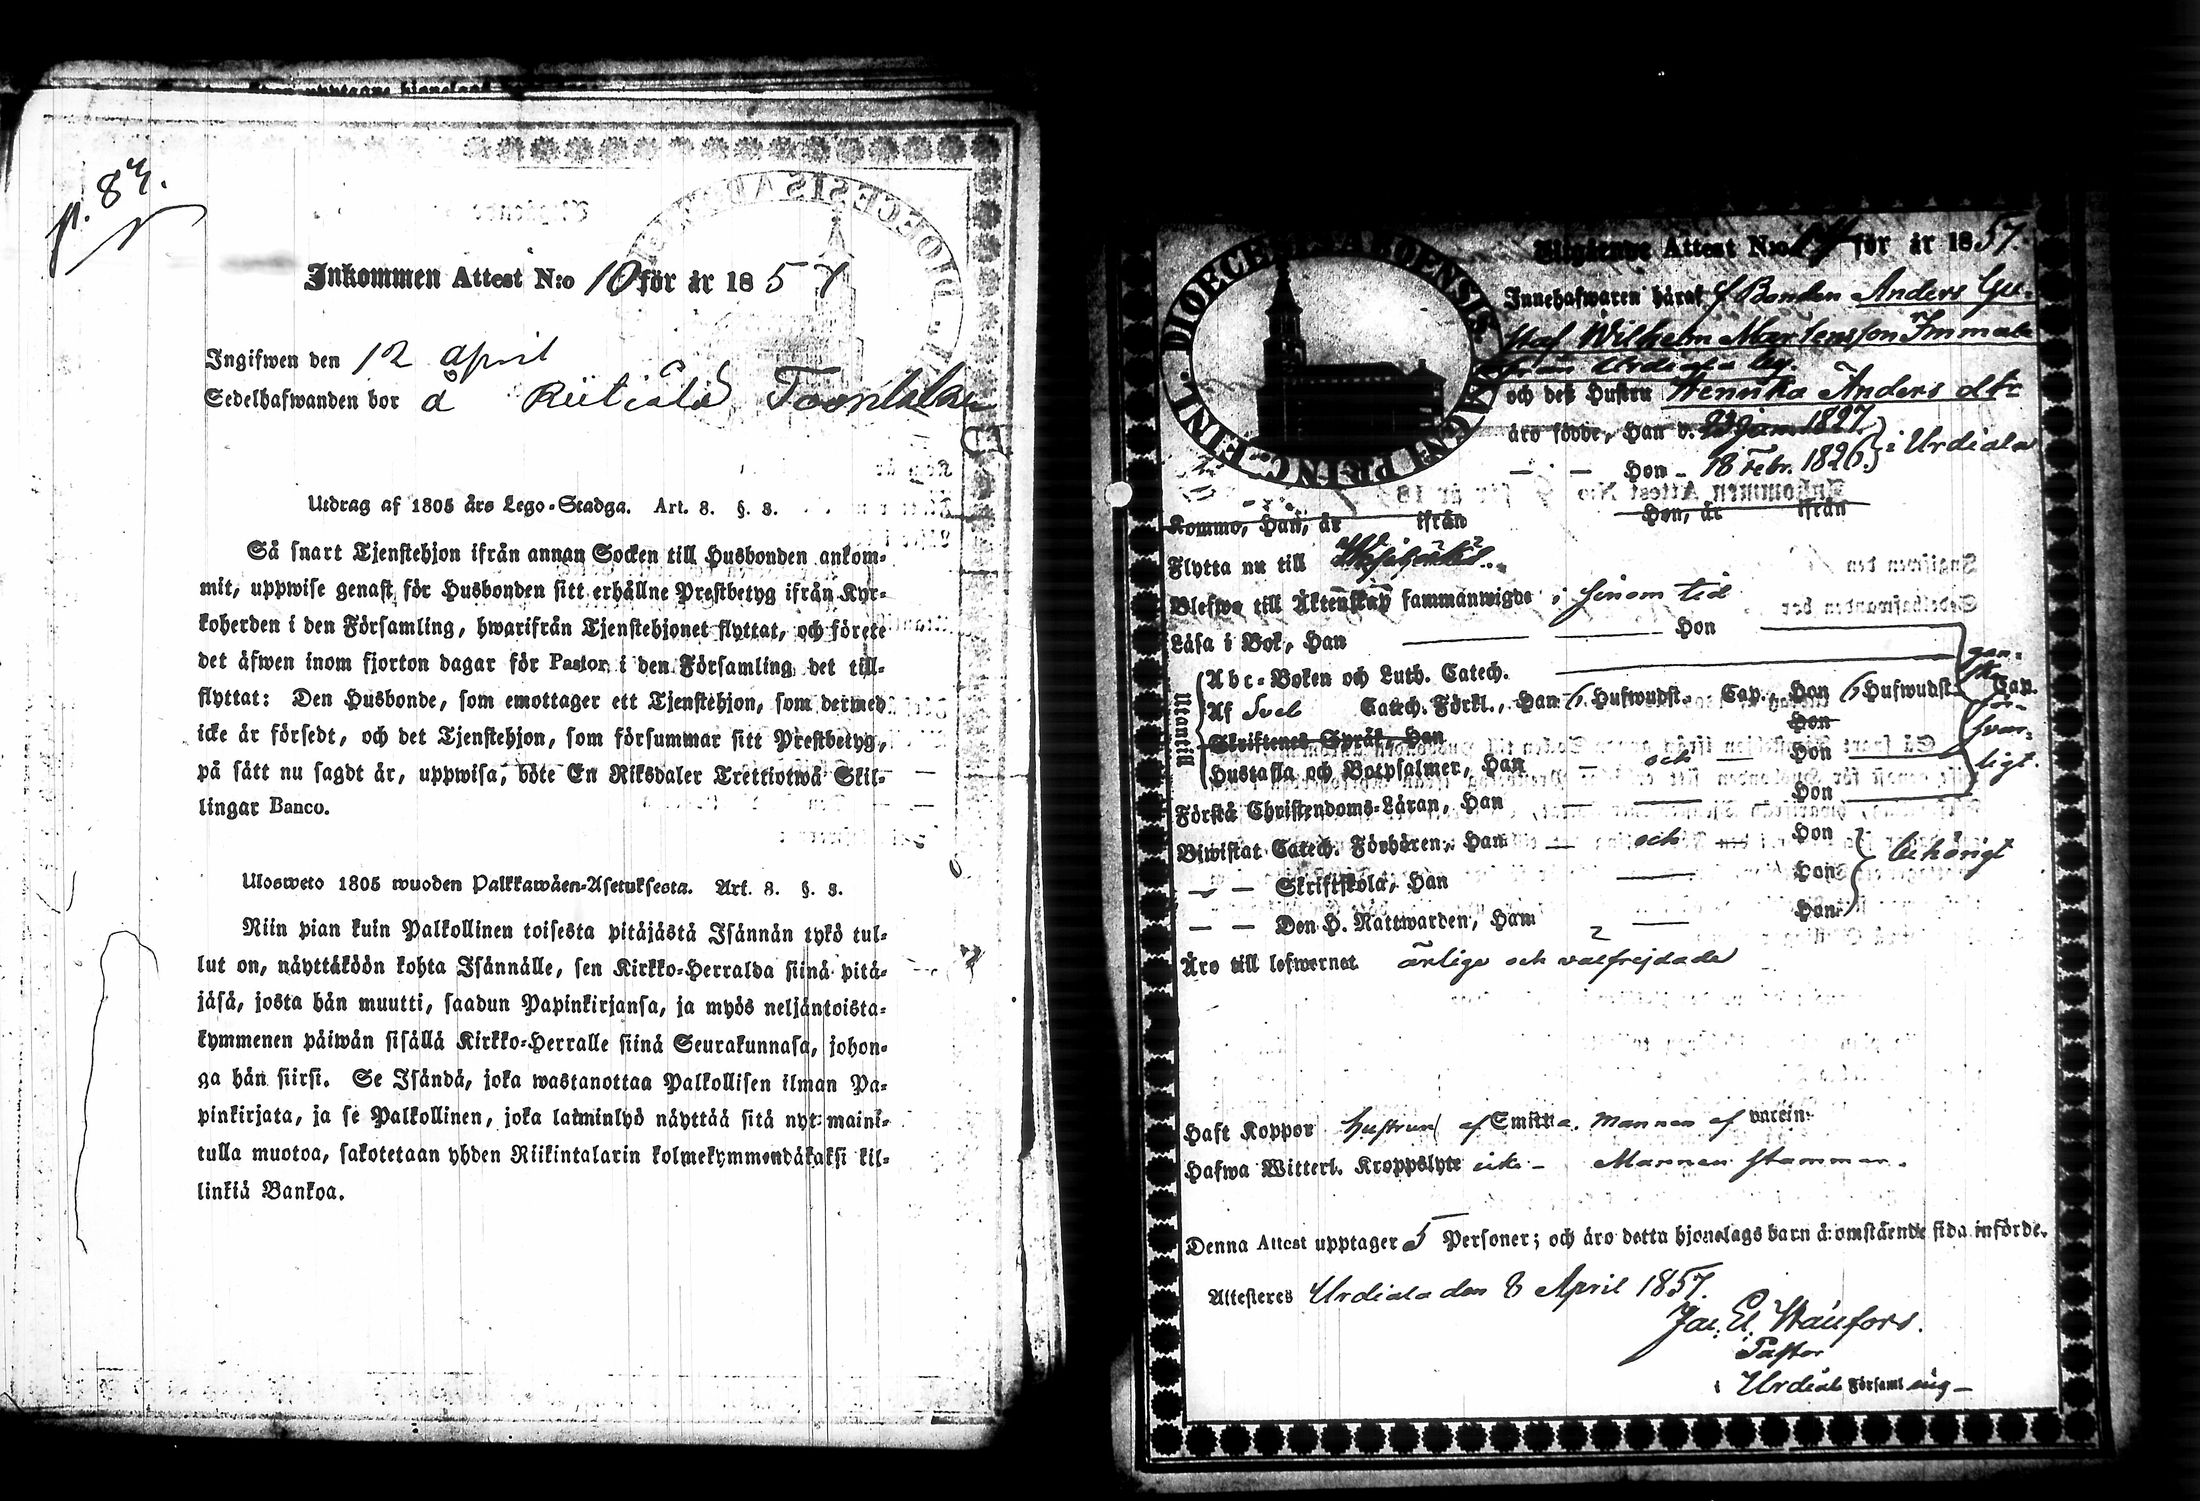 p. 84.
Inkommen Attest N:o 10 för år 1857
Ingifwen den 12 april
Sedelhafwanden bor å
Utdrag af 1805 års Lego-Stadga. Art. 8. §. 3.
Så snart Tjenstehjon ifrån annan Socken till Husbonden ankom-
mit, uppwise genast för Husbonden sitt erhållne Prestbetyg ifrån Kyr-
koherden i den Församling, hwarifrån Tjenstehjonet flyttat, och förete
det äfwen inom fjorton dagar för Pastor i den Församling det till-
flyttat: Den Husbonde, som emottager ett Tjenstehjon, som dermed
icke är försedt, och det Tjenstehjon, som försummar sitt Prestbetyg,
på sätt nu sagdt är, uppwisa, böte En Riksdaler Trettiotwå Skil-
lingar Banco.
Ulosweto 1805 wuoden Palkkawäen-Asetuksesta. Art. 8. §. 3.
Niin pian kuin Palkollinen toisesta pitäjästä Isännän tykö tul-
lut on, näyttäköön kohta Isännälle, sen Kirkko-Herralda siinä pitä-
jäsä, josta hän muutti, saadun Papinkirjansa, ja myös neljäntoista-
kymmenen päiwän sisällä Kirkko-Herralle siinä Seurakunnasa, johon-
ga hän siirsi. Se Isändä, joka wastanottaa Palkollisen ilman Pa-
pinkirjata, ja se Palkollinen, joka laiminlyö näyttää sitä nyt maini-
tulla muotoa, sakotetaan yhden Riikintalarin kolmekymmendäkaksi kil-
linkiä Bankoa.
DIOECESIS ABOENSIS. MAGNI PRINC. FINL.
Utgående Attest N:o 14 för år 1857.
Innehafwaren häraf f Bonden Anders Gu-
staf Wilhelm Mårtensson Immala
från Urdiala by.
och deß Hustru Henrika Anders dtr
äro födde, Han d. 23 jan 1827
— — Hon - 18 Febr. 1826. i Urdiala
Kommo, Han, år ifrån Hon, år ifrån
Flytta nu till
Blefwo till Äktenskap sammanwigde i sinom tid
Läsa i Bok, Han — — Hon
Minnen
Abc-Boken och Luth. Catech.
Af Sveb Catech. Förkl., Han 6 Hufwudst. Cap. Hon 6 Hufwudst. Cap.
Skriftenes Språk, Han Hon
Hustafla och Botpsalmer, Han — och — Hon
Förstå Christendoms-Läran, Han — — Hon
gan-
ska
för-
svar-
ligt.
Biwistat Catech. Förhören, Han — och Hon
— — Skriftskola, Han — Hon
— — Den H. Nattwarden, Han — Hon
behörigt
Äro till lefwernet ärlige och välfrejdade
Haft Koppor hustrun af Smitta, mannen af vaccin
Hafwa Witterl. Kroppslyte icke - Mannen stammar.
Denna Attest upptager 5 Personer; och äro detta hjonelags barn å omstående sida införde.
Attesteres Urdiala den 8 April 1857.
Pastor
i Urdiala Församling —